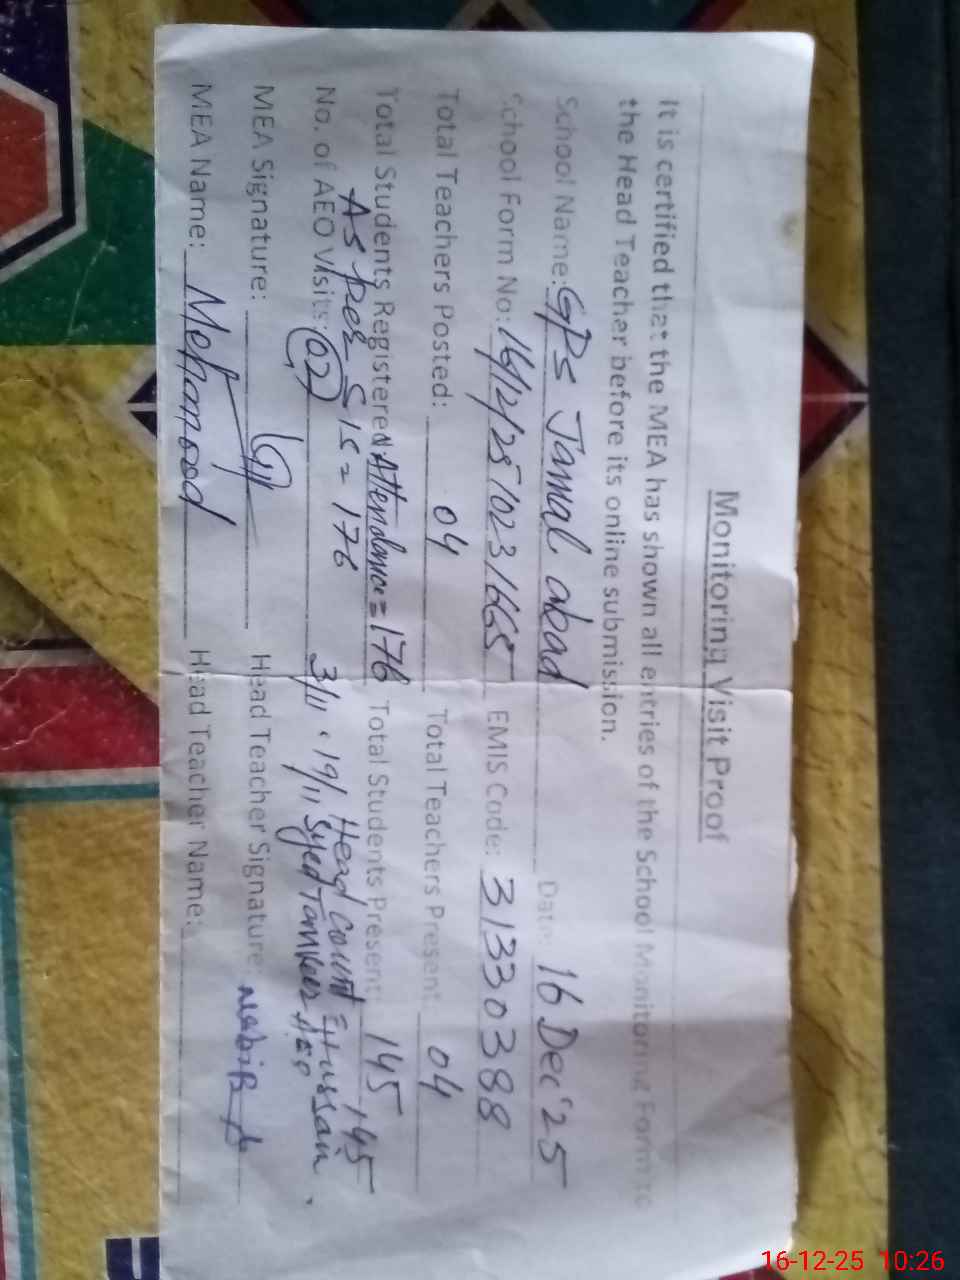 Monitoring Visit Proof
It is certified that the MEA has shown all entries of the School Monitoring Form to
the Head Teacher before its online submission.
School Name: GPS Jamal abad Date: 16 Dec '25
School Form No: 16/12/25/023/665 EMIS Code: 31330388
Total Teachers Posted: 04 Total Teachers Present: 04
Total Students Registered Attendance = 176 Total Students Present: 145
As per SIS = 176 Head Count = 145
No. of AEO Visits: 02 3/11, 19/11 Syed Hussain.
MEA Signature: Head Teacher Signature:
MEA Name: Mehmood Head Teacher Name:
16-12-25 10:26